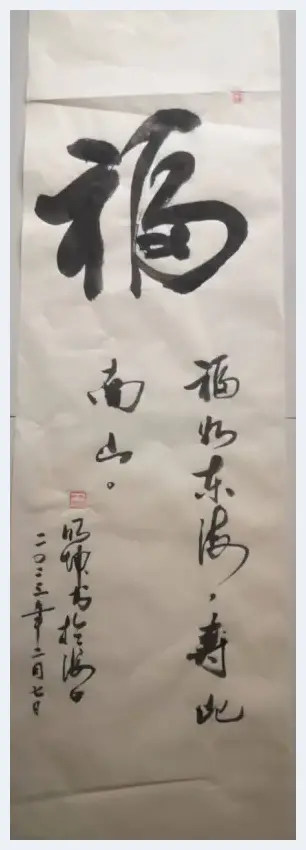 福
福如东海，寿比
南山。
明坤书於海口
二〇二三年二月七日